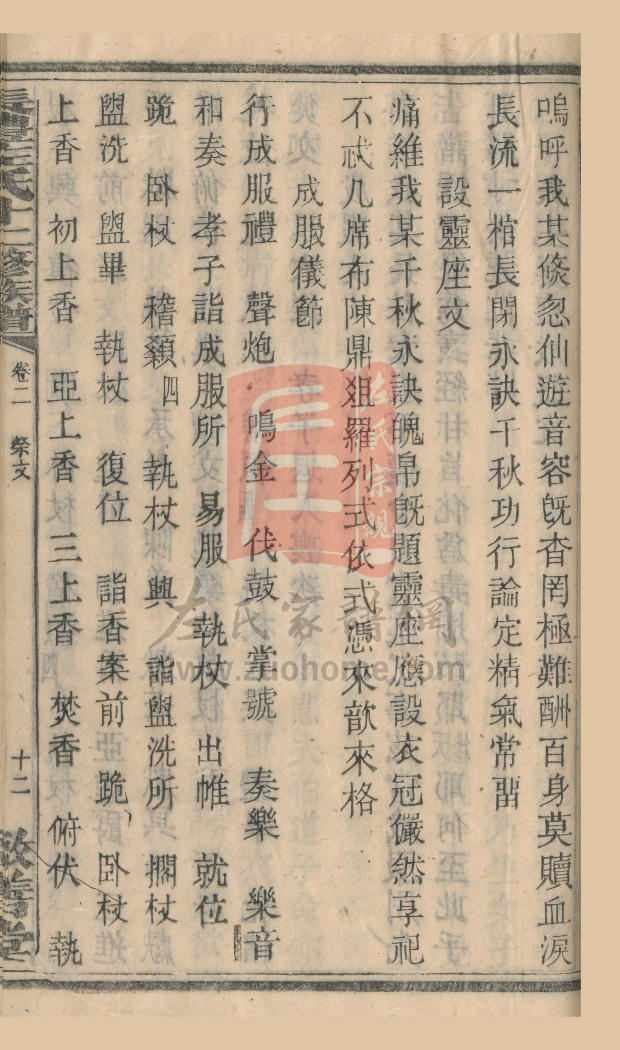 嗚呼我某倏忽仙遊音容既杳罔極難酬百身莫贖血淚
長流一棺長閉永訣千秋功行論定精氣常畱
設靈座文
痛維我某千秋永訣魄帛既題靈座應設衣冠儼然享祀
不忒几席布陳鼎俎羅列式依式憑來歆來格
成服儀節
行成服禮 聲炮 鳴金 伐鼓 掌號 奏樂 樂音
和奏 孝子詣成服所 易服 執杖 出帷 就位
跪 卧杖 稽顙四 執杖 興 詣盥洗所 擱杖
盥洗前盥畢 執杖 復位 詣香案前 跪 卧杖
上香 初上香 亞上香 三上香 焚香 俯伏 執
氏十二修族譜 卷二 祭文 十二
左氏宗親
左氏家譜網
www.zuohome.com